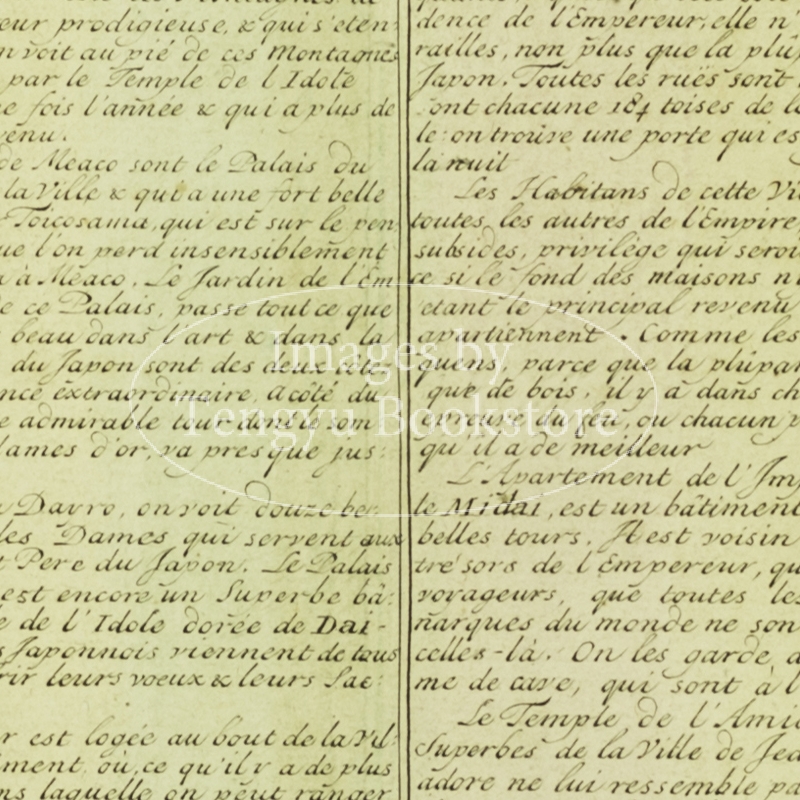 eur prodigieuse, & qui s'éten-
n voit au pié de ces Montagnes
par le Temple de l'Idole
e fois l'année & qui a plus de
venu.
de Meaco sont le Palais du
la Ville & qui a une fort belle
Toicosama, qui est sur le pen-
ue l'on perd insensiblement
à Meaco. Le Jardin de l'Em
e ce Palais, passe tout ce que
beau dans l'art & dans la
du Japon sont des deux côtez
nce extraordinaire. A côté du
e admirable tour dont le som
lames d'or, va presque jus-
Dayro, on voit douze be-
les Dames qui servent aux
t Pere du Japon. Le Palais
est encore un Superbe bâ-
e de l'Idole dorée de Dai-
s Japonnois viennent de tous
rir leurs voeux & leurs Sac-
r est logée au bout de la Vil-
ment où, ce qu'il y a de plus
ns laquelle on peut ranger
dence de l'Empereur, elle n'
railles, non plus que la plûp
Japon. Toutes les ruës sont
sont chacune 184 toises de lo
le: on trouve une porte qui es
la nuit
Les Habitans de cette Vi
toutes les autres de l'Empire,
subsides, privilége qui seroi
ce si le fond des maisons n'
etant le principal revenu
apartiennent. Comme les
quens, parce que la plûpar
que de bois, il y a dans ch
epreuve du feu, ou chacun p
qu'il a de meilleur
L'Apartement de l'Imp
le Midai, est un bâtiment
belles tours. Il est voisin
trésors de l'Empereur, qu
voyageurs, que toutes les
narques du monde ne son
celles-là. On les garde d
me de cave, qui sont à l'
Le Temple de l'Ami
Superbes de la Ville de Jed
adore ne lui ressemble pa
Images by
Tengyu Bookstore